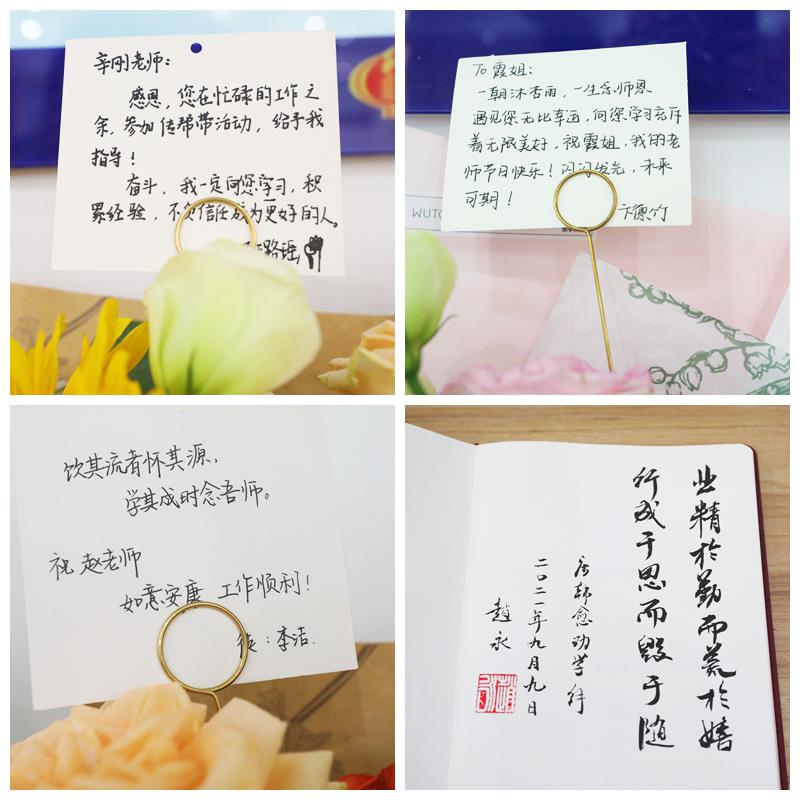 辛刚老师：
感恩，您在忙碌的工作之
余，参加传帮带活动，给予我
指导！
奋斗，我一定向您学习，积
累经验，不负信任成为更好的人。
路瑶
To 霞姐：
一朝沐杏雨，一生念师恩
遇见您无比幸运，向您学习充斥
着无限美好，祝霞姐，我的老
师节日快乐！闪闪发光，未来
可期！
卞德竹
WUTO
饮其流者怀其源，
学其成时念吾师。
祝 赵老师
如意安康 工作顺利！
徒：李洁.
业精於勤而荒於嬉
行成于思而毁于随
唐韩愈劝学解
二〇二一年九月九日
赵永